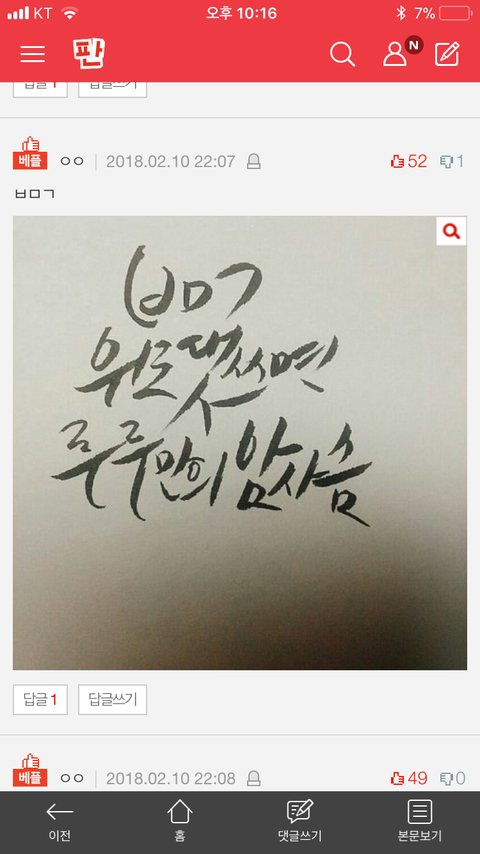 KT 오후 10:16 7%
판 N
답글 1 답글쓰기
베플 ㅇㅇ 2018.02.10 22:07 52 1
ㅂㅁㄱ
ㅂㅁㄱ
위도댓쓰면
루루만의암사슴
답글 1 답글쓰기
베플 ㅇㅇ 2018.02.10 22:08 49 0
이전 홈 댓글쓰기 본문보기